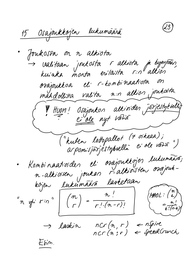 15 Osajoukkojen lukumäärä
29
• Joukossa on n alkiota
→ valitaan joukosta r alkiota ja kysytään,
kuinka monta erilaista r:n alkion
osajoukkoa eli r-kombinaatiota on
mahdollista valita n:n alkion joukosta
! HUOM! Osajoukon alkioiden järjestyksellä
ei ole nyt väliä
"kuten lottopallot (7 oikeaa);
arpomisjärjestyksellä ei ole väliä"
• Kombinaatioiden eli osajoukkojen lukumäärä,
n-alkioisen joukon r-alkioisten osajouk-
kojen lukumäärä lasketaan
"n yli r:n"
(n r) = n! / r!·(n-r)!
MAOL: (n k)
→ laskin nCr(n,r) ← nspire
ncr(n;r) ← speedcrunch
Esim